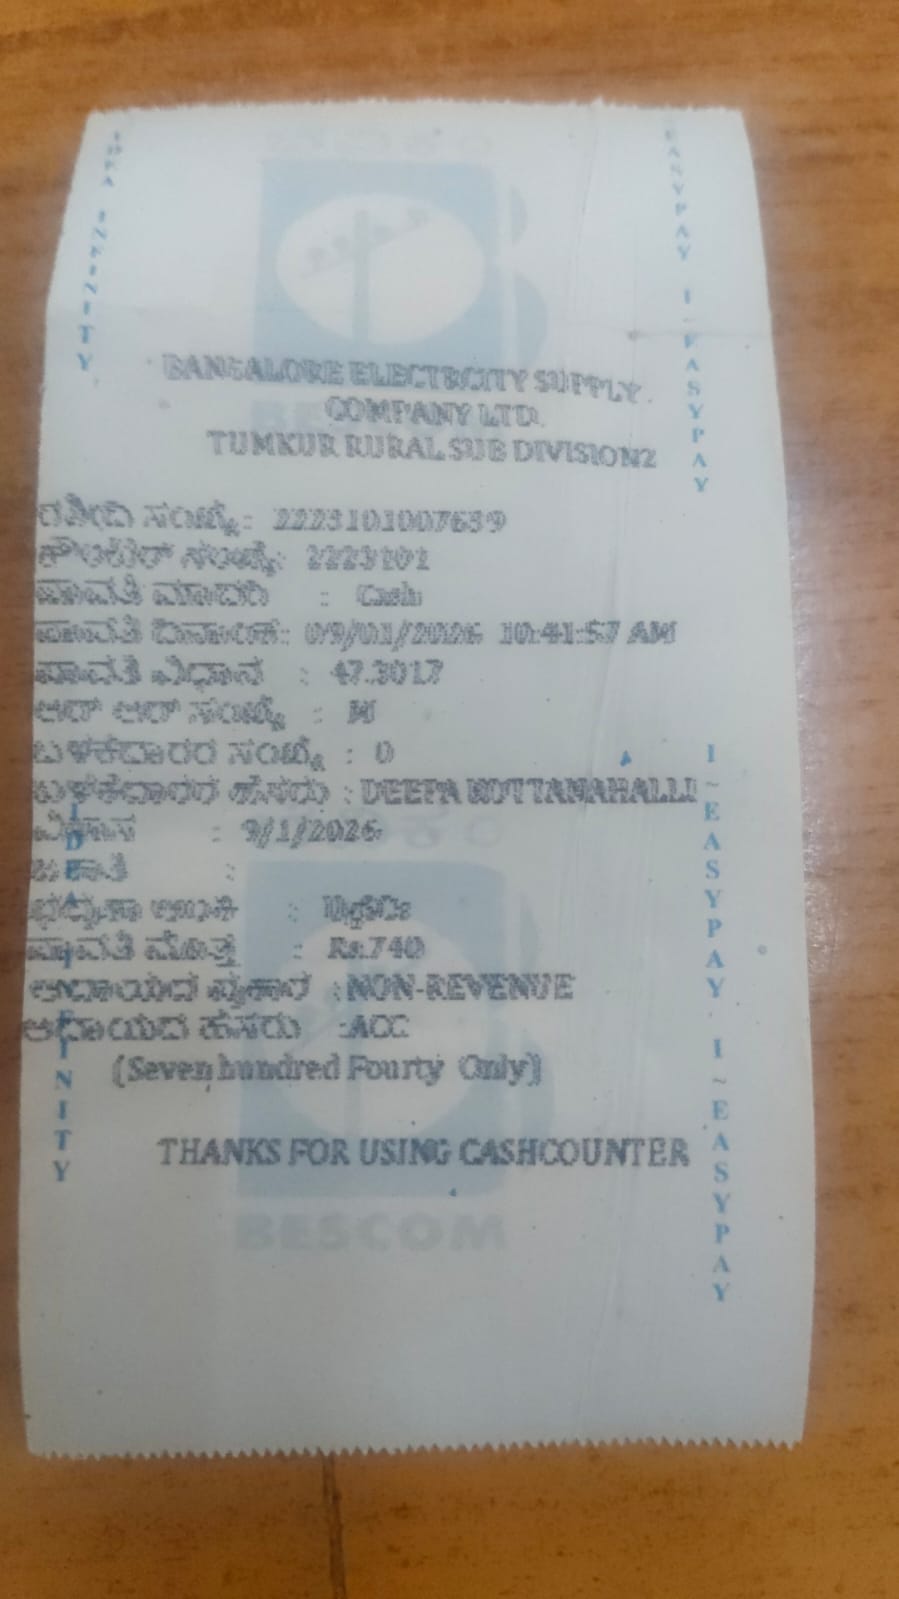 BANGALORE ELECTRCITY SUPPLY
COMPANY LTD.
TUMKUR RURAL SUB DIVISION2
ರಶೀದಿ ಸಂಖ್ಯೆ : 2223101007639
ಕೌಂಟರ್ ಸಂಖ್ಯೆ: 2223101
ಪಾವತಿ ಮಾದರಿ : Cash
ಪಾವತಿ ದಿನಾಂಕ: 09/01/2026 10:41:57 AM
ಪಾವತಿ ವಿಧಾನ : 47.3017
ಆರ್ ಆರ್ ಸಂಖ್ಯೆ : M
ಬಳಕೆದಾರರ ಸಂಖ್ಯೆ : 0
ಬಳಕೆದಾರರ ಹೆಸರು : DEEPA KOTTANAHALLI
: 9/1/2026
:
:
ಪಾವತಿ ಮೊತ್ತ : Rs.740
ಆದಾಯದ ಪ್ರಕಾರ : NON-REVENUE
ಆದಾಯದ ಹೆಸರು :ACC
(Seven hundred Fourty Only)
THANKS FOR USING CASHCOUNTER
BESCOM
IDEA INFINITY
EASYPAY I~EASYPAY
IDEA INFINITY
I~EASYPAY I~EASYPAY